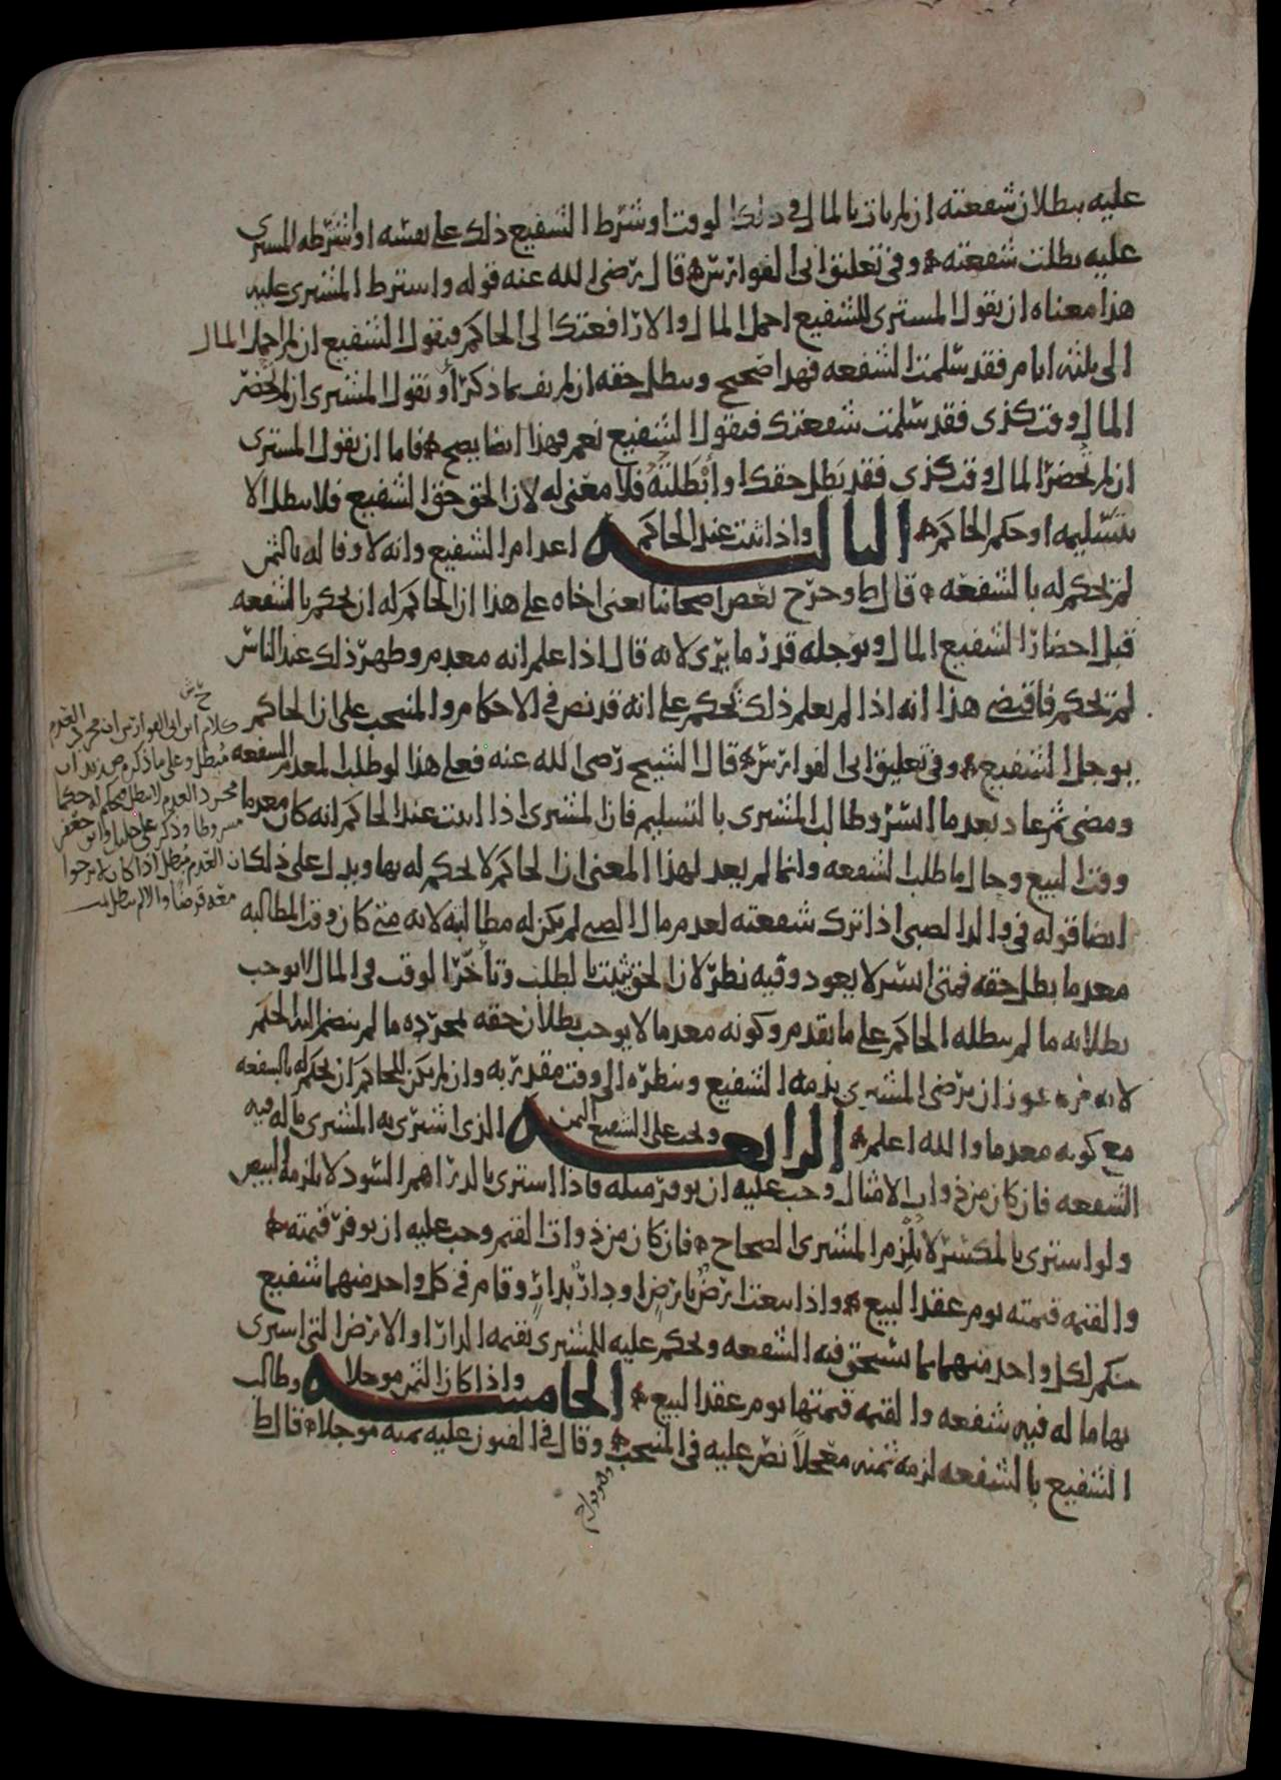 عليه ببطلان شفعته ان لم يات بالمال في ذلك الوقت او شرط الشفيع ذلك على نفسه او شرطه المشتري
عليه بطلت شفعته وفي تعليق ابي الفوارس قال رضي الله عنه قوله واشترط المشتري عليه
هذا معناه ان يقول المشتري للشفيع احمل المال والا رافعتك الى الحاكم فيقول الشفيع ان لم احمل المال
الى ثلثه ايام فقد سلمت الشفعه فهذا صحيح ويبطل حقه ان لم يف بما ذكر او يقول المشتري ان لم تحضر
المال وقت كذى فقد سلمت شفعتك فيقول الشفيع نعم فهذا ايضا يصح فاما ان يقول المشتري
ان لم تحضر المال وقت كذى فقد بطل حقك او أبطلته فلا معنى له لان الحق حق الشفيع فلا يبطل الا
بتسليمه او حكم الحاكم الثالثه واذا ثبت عند الحاكم اعدام الشفيع وانه لا وفا له بالثمن
لم يحكم له بالشفعه قال ط وخرج بعض اصحابنا يعني اخاه على هذا ان الحاكم له ان يحكم بالشفعه
قبل احضار الشفيع المال ويؤجله قدر ما يرى لانه قال اذا علم انه معدم وظهر ذلك عند الناس
لم يحكم فاقتضى هذا انه اذا لم يعلم ذلك يحكم على انه قد نص في الاحكام والمنتخب على ان الحاكم
يوجل الشفيع وفي تعليق ابي الفوارس قال الشيخ رضي الله عنه فعلى هذا لو طلب المعدم الشفعه
ومضى ثم عاد بعد ما ايسر وطالب المشتري بالتسليم فان المشتري اذا اثبت عند الحاكم انه كان معدما
وقت البيع وحال ما طلب الشفعه وانما لم يعد لهذا المعنى ان الحاكم لا يحكم له بها ويدل على ذلك
ايضا قوله في والد الصبي اذا ترك شفعته لعدم مال الصبي لم يكن له مطالبته لانه متى كان وقت المطالبه
معدما بطل حقه فمتى ايسر لا يعود وفيه نظر لان الحق يثبت بالطلب وتأخر الوقت في المال لا يوجب
بطلانه ما لم يبطله الحاكم على ما تقدم وكونه معدما لا يوجب بطلان حقه بمجرده ما لم ينضم اليه الحكم
لانه يجوز ان يرضى المشتري بذمه الشفيع وينظره الى وقت مقدرته وان لم يكن للحاكم ان يحكم له بالشفعه
مع كونه معدما والله اعلم الرابعه ويجب على الشفيع الثمن الذي اشترى به المشتري ما له فيه
الشفعه فان كان من ذوات الامثال وجب عليه ان يوفر مثله فاذا اشترى بالدراهم السود لا يلزمه البيض
ولو اشترى بالمكسر لا يلزم المشتري الصحاح فان كان من ذوات القيم وجب عليه ان يوفر قيمته
والقيمه قيمته يوم عقد البيع واذا بيعت ارض بارض او دار بدار وقام في كل واحد منهما شفيع
حكم لكل واحد منهما بما يستحق فيه الشفعه ويحكم عليه للمشتري بقيمه الدار او الارض التي اشترى
بها ما له فيه شفعه والقيمه قيمتها يوم عقد البيع الخامسه واذا كان الثمن موجلا وطالب
الشفيع بالشفعه لزمه ثمنه معجلاً نص عليه في المنتخب وقال في الفنون عليه ثمنه موجلا قال ط
كلام ابن ابي الفوارس ان مجرد العدم
مبطل وعلى ما ذكره
مجرد العدم لا يبطل
مشروطا وذكر علي خليل وابو جعفر
ان العدم يبطل اذا كان لا يرجوا
معه قرضا والا لم يبطل